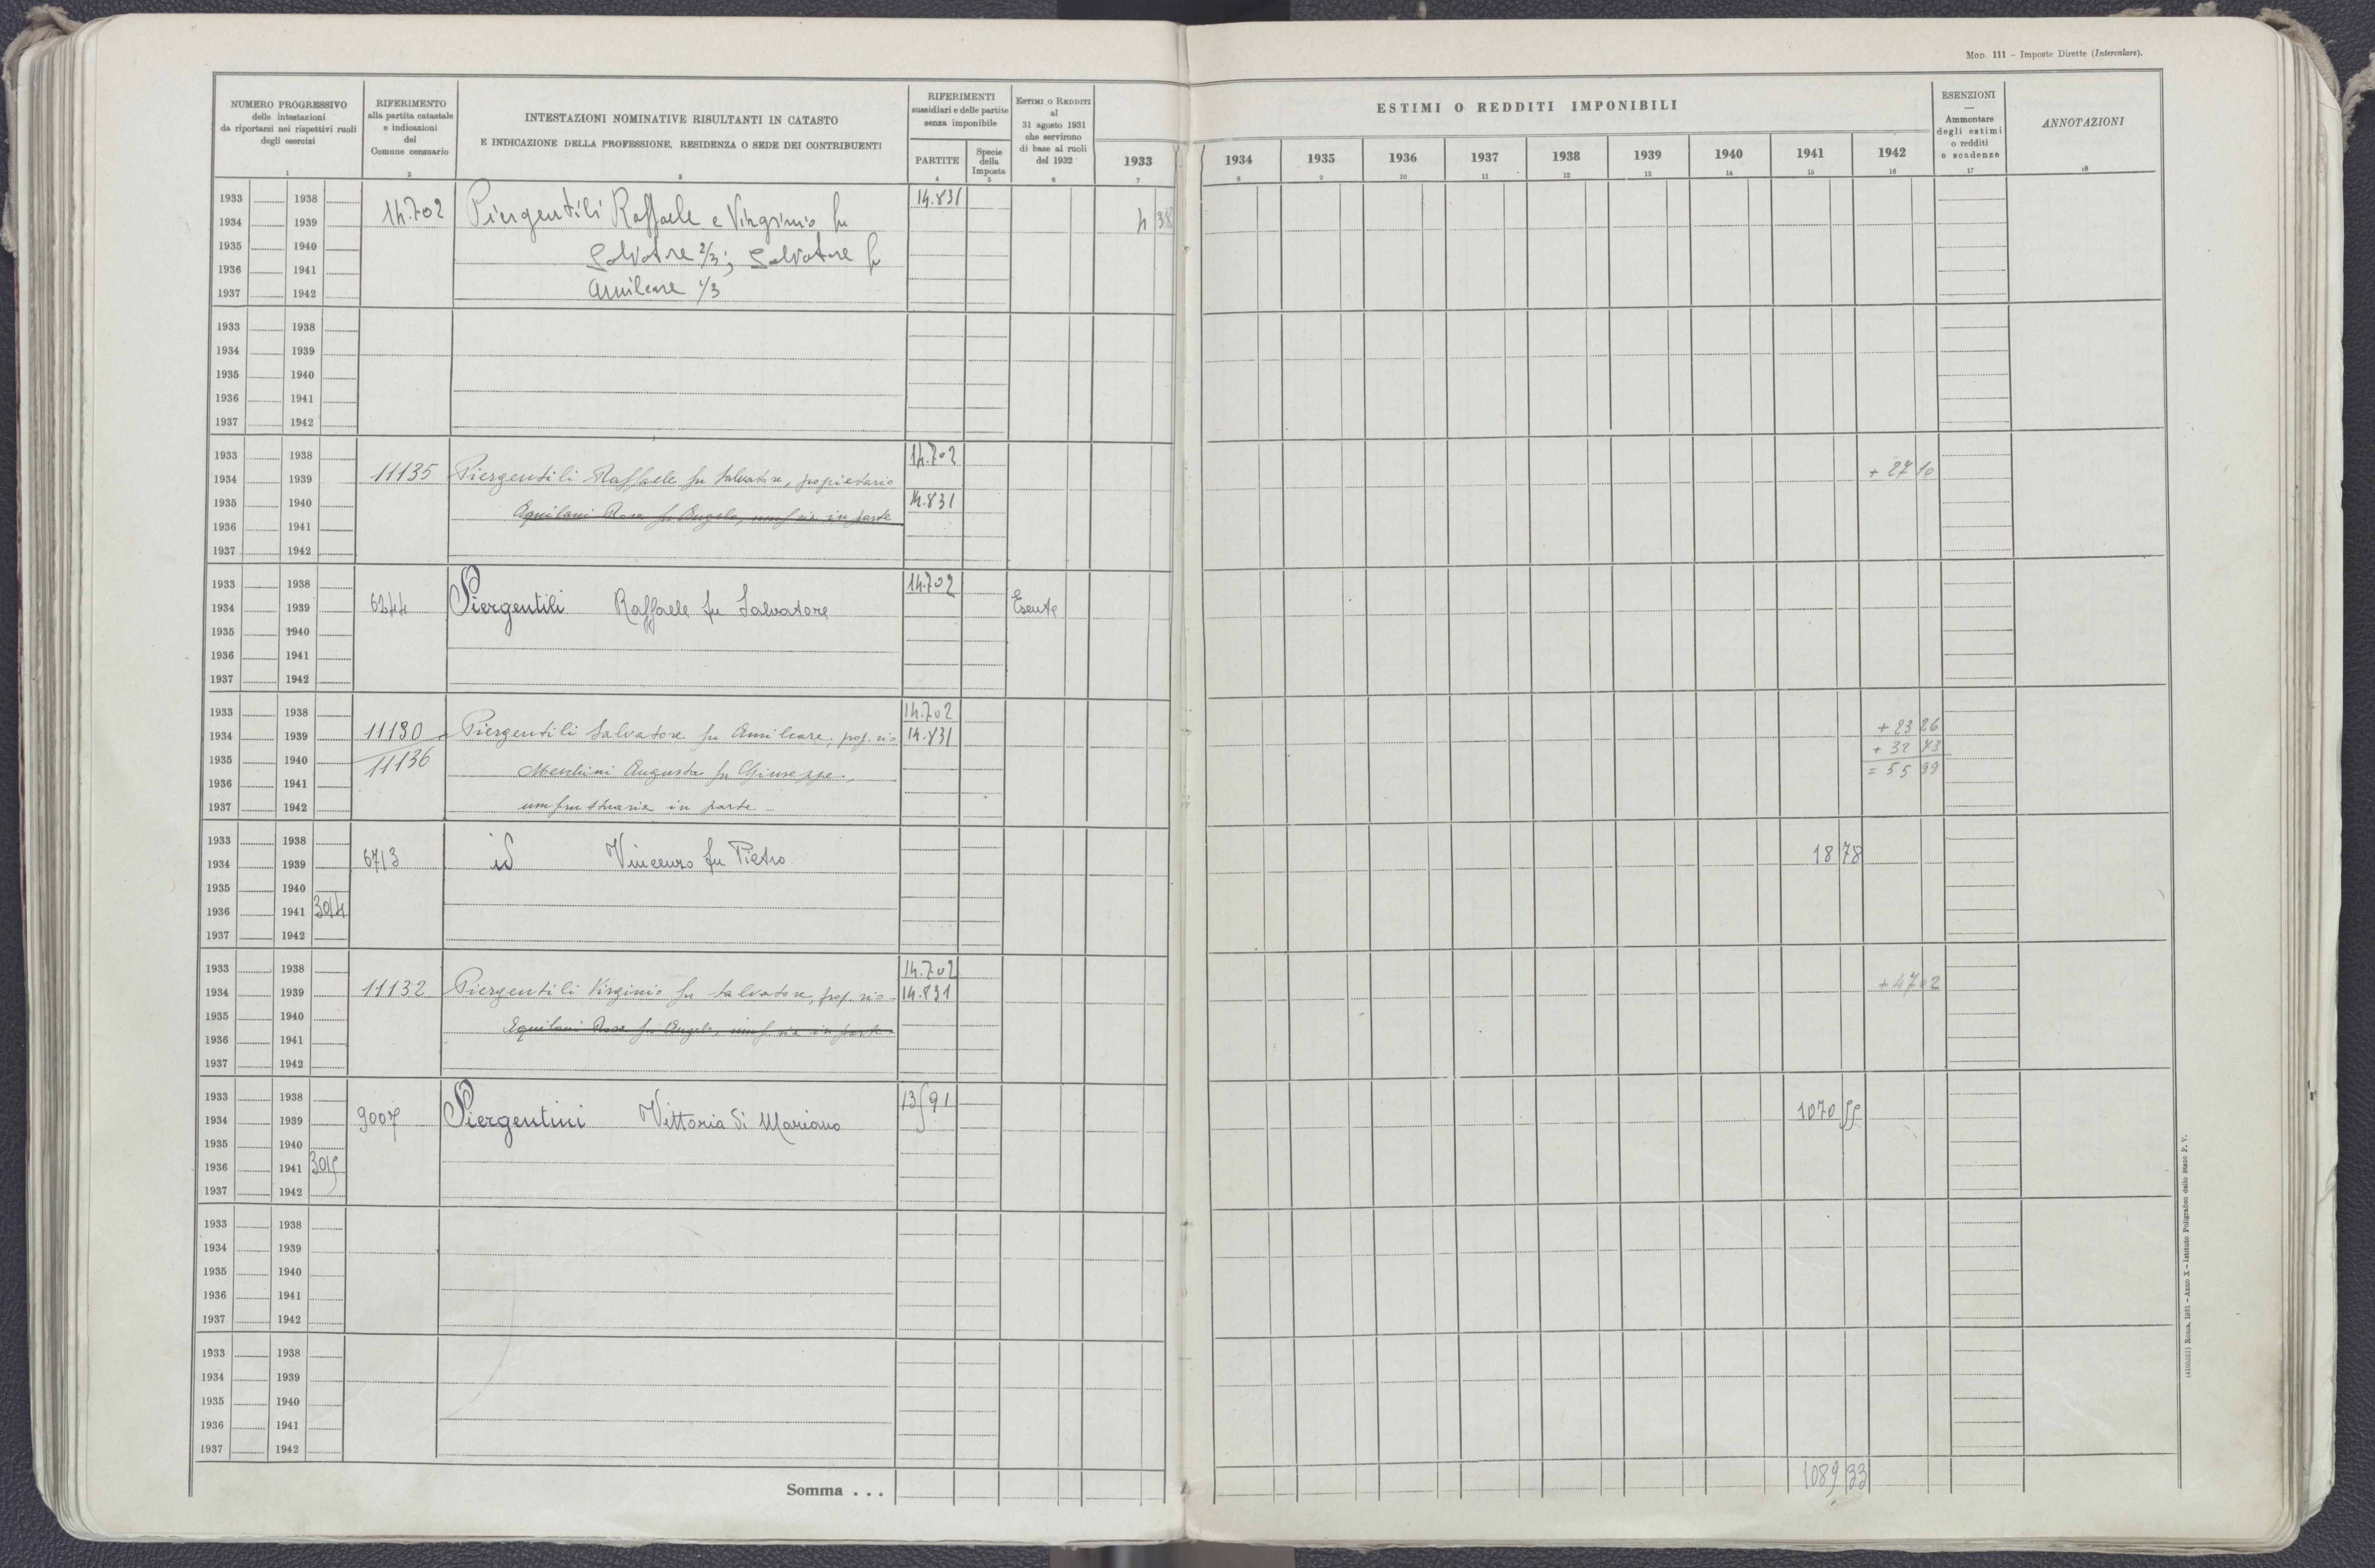 Mod. 111 – Imposte Dirette (Intercalare).
NUMERO PROGRESSIVO
delle intestazioni
da riportarsi nei rispettivi ruoli
degli esercizi
1
RIFERIMENTO
alla partita catastale
e indicazioni
del
Comune censuario
2
INTESTAZIONI NOMINATIVE RISULTANTI IN CATASTO
E INDICAZIONE DELLA PROFESSIONE, RESIDENZA O SEDE DEI CONTRIBUENTI
3
RIFERIMENTI
sussidiari e delle partite
senza imponibile
PARTITE
4
Specie
della
Imposta
5
Estimi o Redditi
al
31 agosto 1931
che servirono
di base ai ruoli
del 1932
6
ESTIMI O REDDITI IMPONIBILI
1933 1934 1935 1936 1937 1938 1939 1940 1941 1942
7 8 9 10 11 12 13 14 15 16
ESENZIONI
—
Ammontare
degli estimi
o redditi
e scadenze
17
ANNOTAZIONI
18
1933 1938 14.831
1934 1939 14.702 Piergentili Raffaele e Virginio fu 4 38
1935 1940 Salvatore 2/3; Salvatore fu
1936 1941
1937 1942 Amilcare 1/3
1933 1938
1934 1939
1935 1940
1936 1941
1937 1942
1933 1938 14.702
1934 1939 11135 Piergentili Raffaele fu Salvatore, proprietario + 27 10
1935 1940 14.831
1936 1941 Aquilani Rosa fu Angelo, usuf.ria in parte
1937 1942
1933 1938 14.702
1934 1939 6244 Piergentili Raffaele fu Salvatore Esente
1935 1940
1936 1941
1937 1942
1933 1938 14.702
1934 1939 11130 Piergentili Salvatore fu Amilcare, prop.rio 14.831 + 23 26
1935 1940 11136 + 32 73
1936 1941 Meschini Augusta fu Giuseppe, = 55 99
1937 1942 usufruttuaria in parte
1933 1938
1934 1939 6713 id Vincenzo fu Pietro 18 78
1935 1940
1936 1941 3014
1937 1942
1933 1938 14.702
1934 1939 11132 Piergentili Virginio fu Salvatore, prop.rio 14.831 + 47 02
1935 1940
1936 1941 Aquilani Rosa fu Angelo, usuf.ria in parte
1937 1942
1933 1938 13591
1934 1939 9007 Piergentini Vittoria di Mariano 1070 55
1935 1940
1936 1941 3015
1937 1942
1933 1938
1934 1939
1935 1940
1936 1941
1937 1942
1933 1938
1934 1939
1935 1940
1936 1941
1937 1942
Somma . . . 1089 33
(4105651) Roma, 1931 – Anno X – Istituto Poligrafico dello Stato P. V.